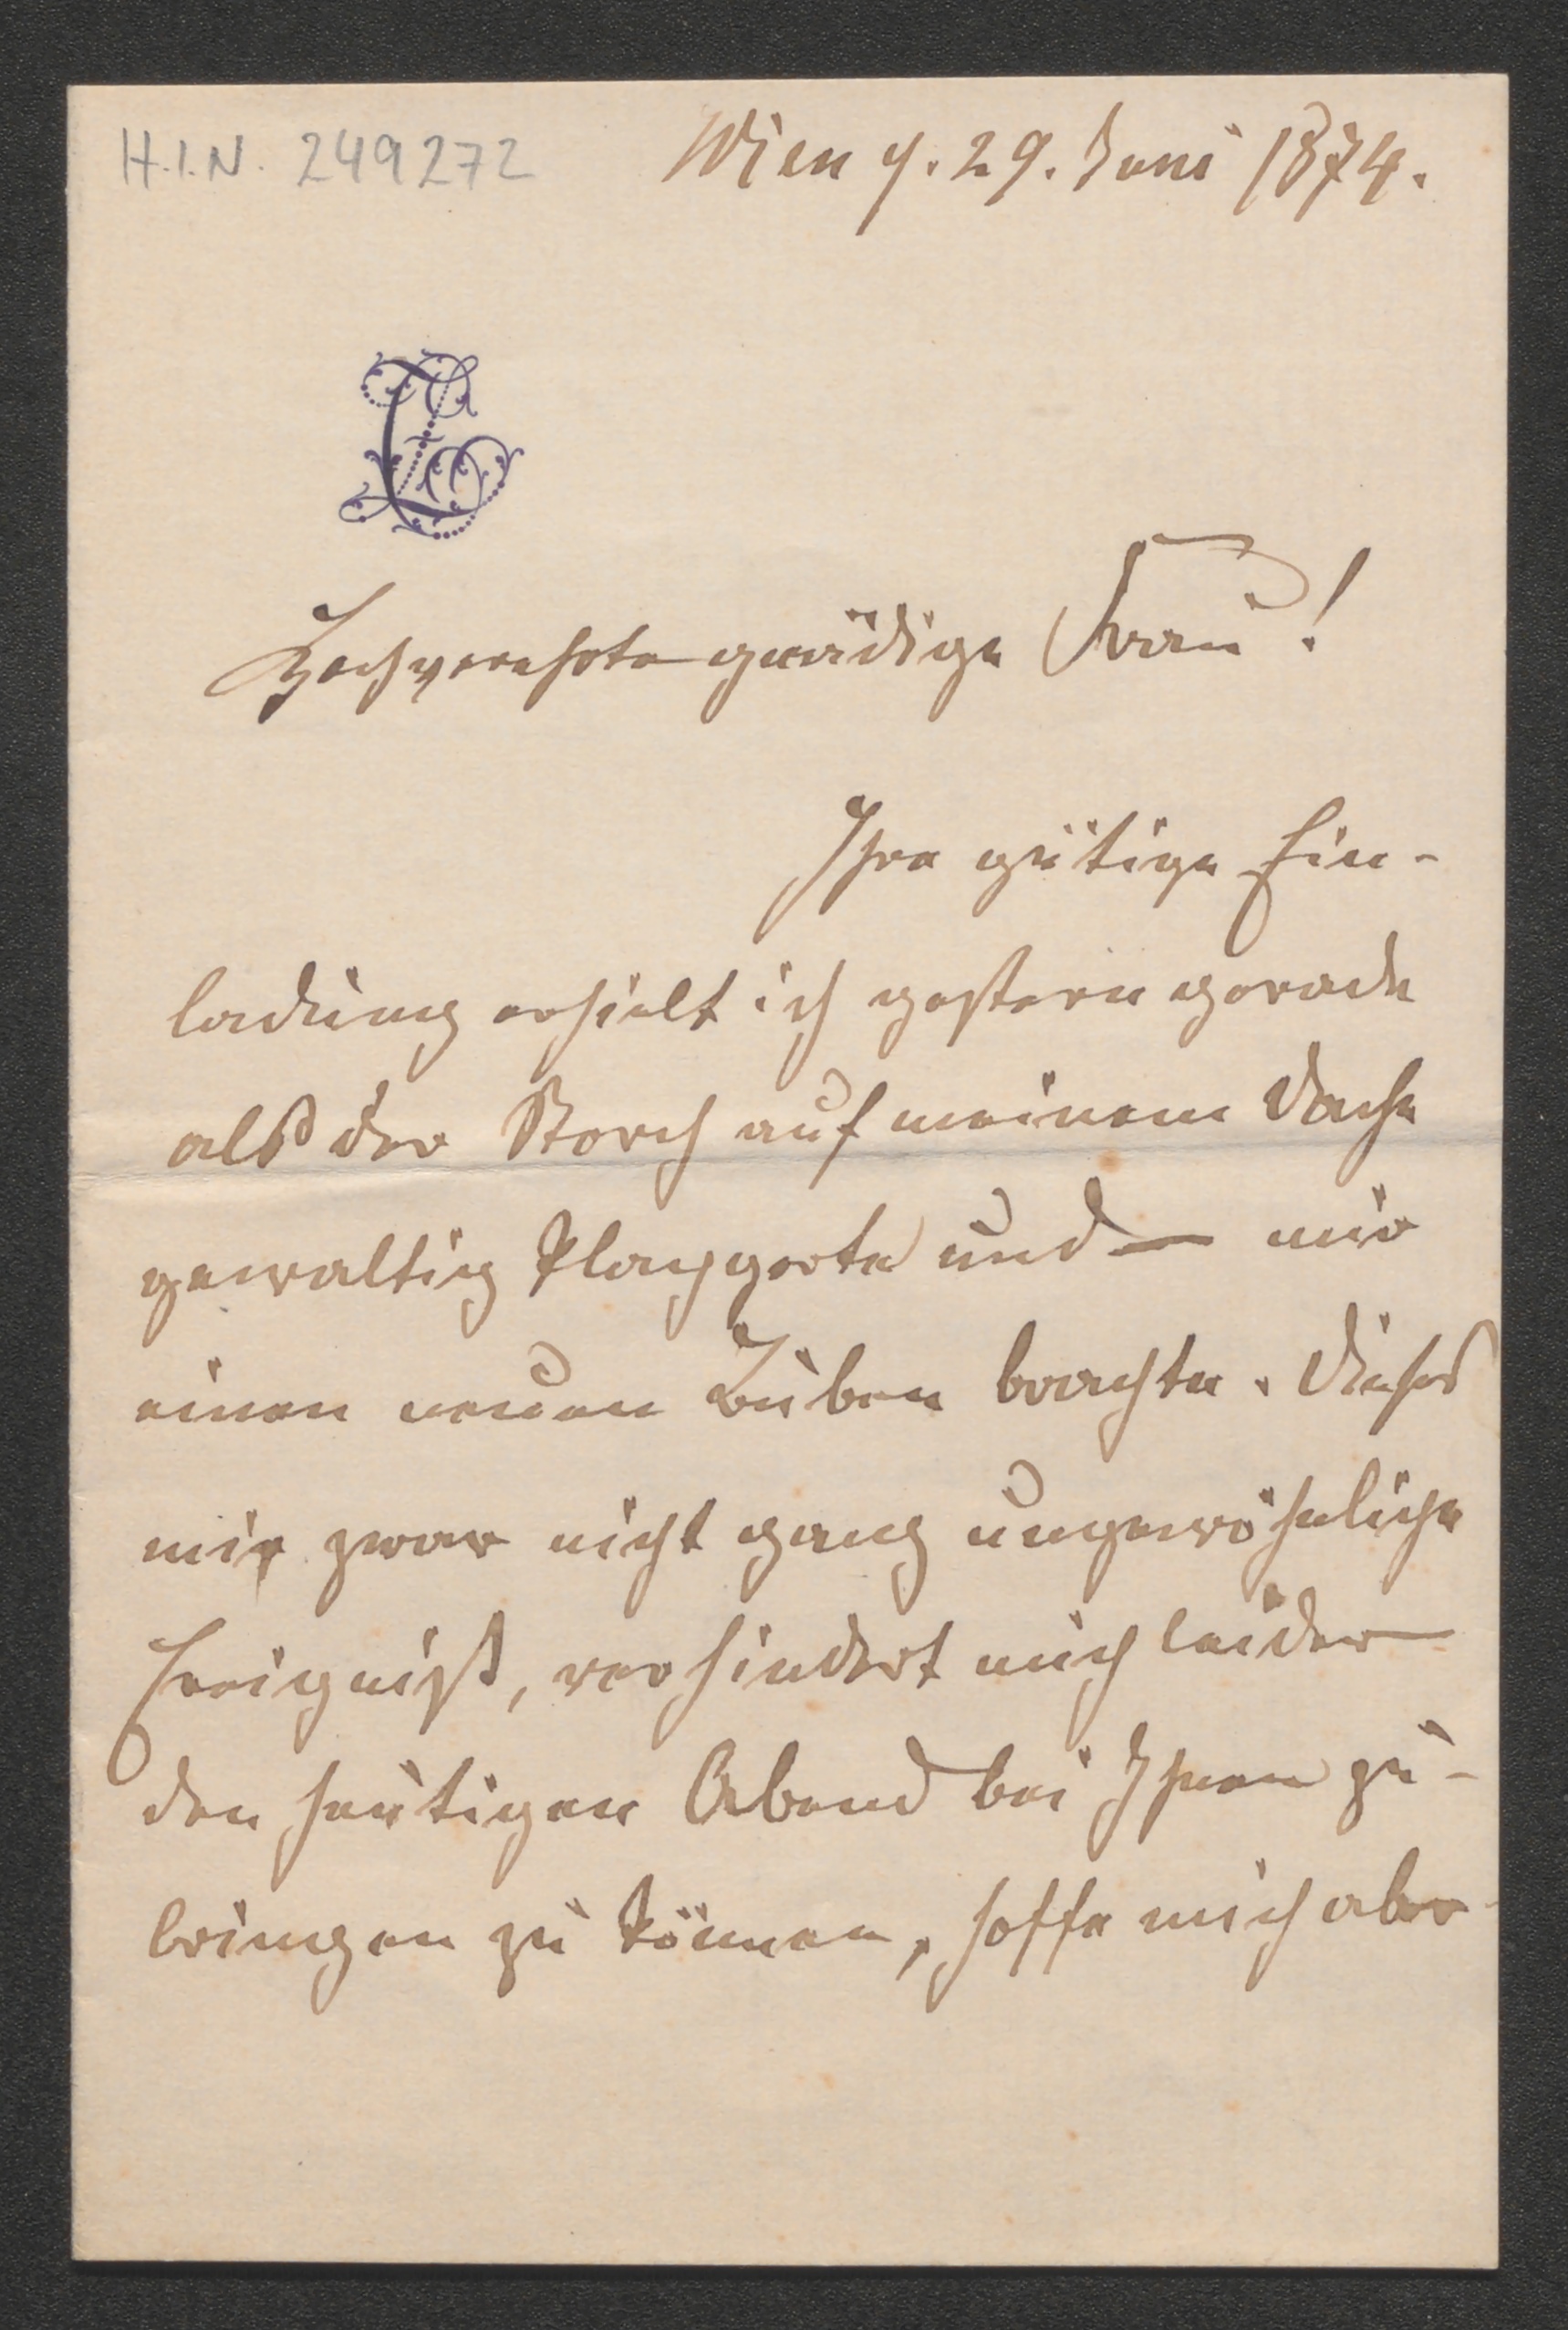 H.I.N. 249272
Wien d. 29. Juni 1874.
Hochverehrte gnädige Frau!
Ihre gütige Ein-
ladung erhielt ich gestern gerade
als der Storch auf meinem Dache
gewaltig klapperte und – mir
einen neuen Buben brachte. Dieses
mir zwar nicht ganz ungewöhnliche
Ereigniß, verhindert mich leider
den heutigen Abend bei Ihnen zu-
bringen zu können, hoffe mich aber